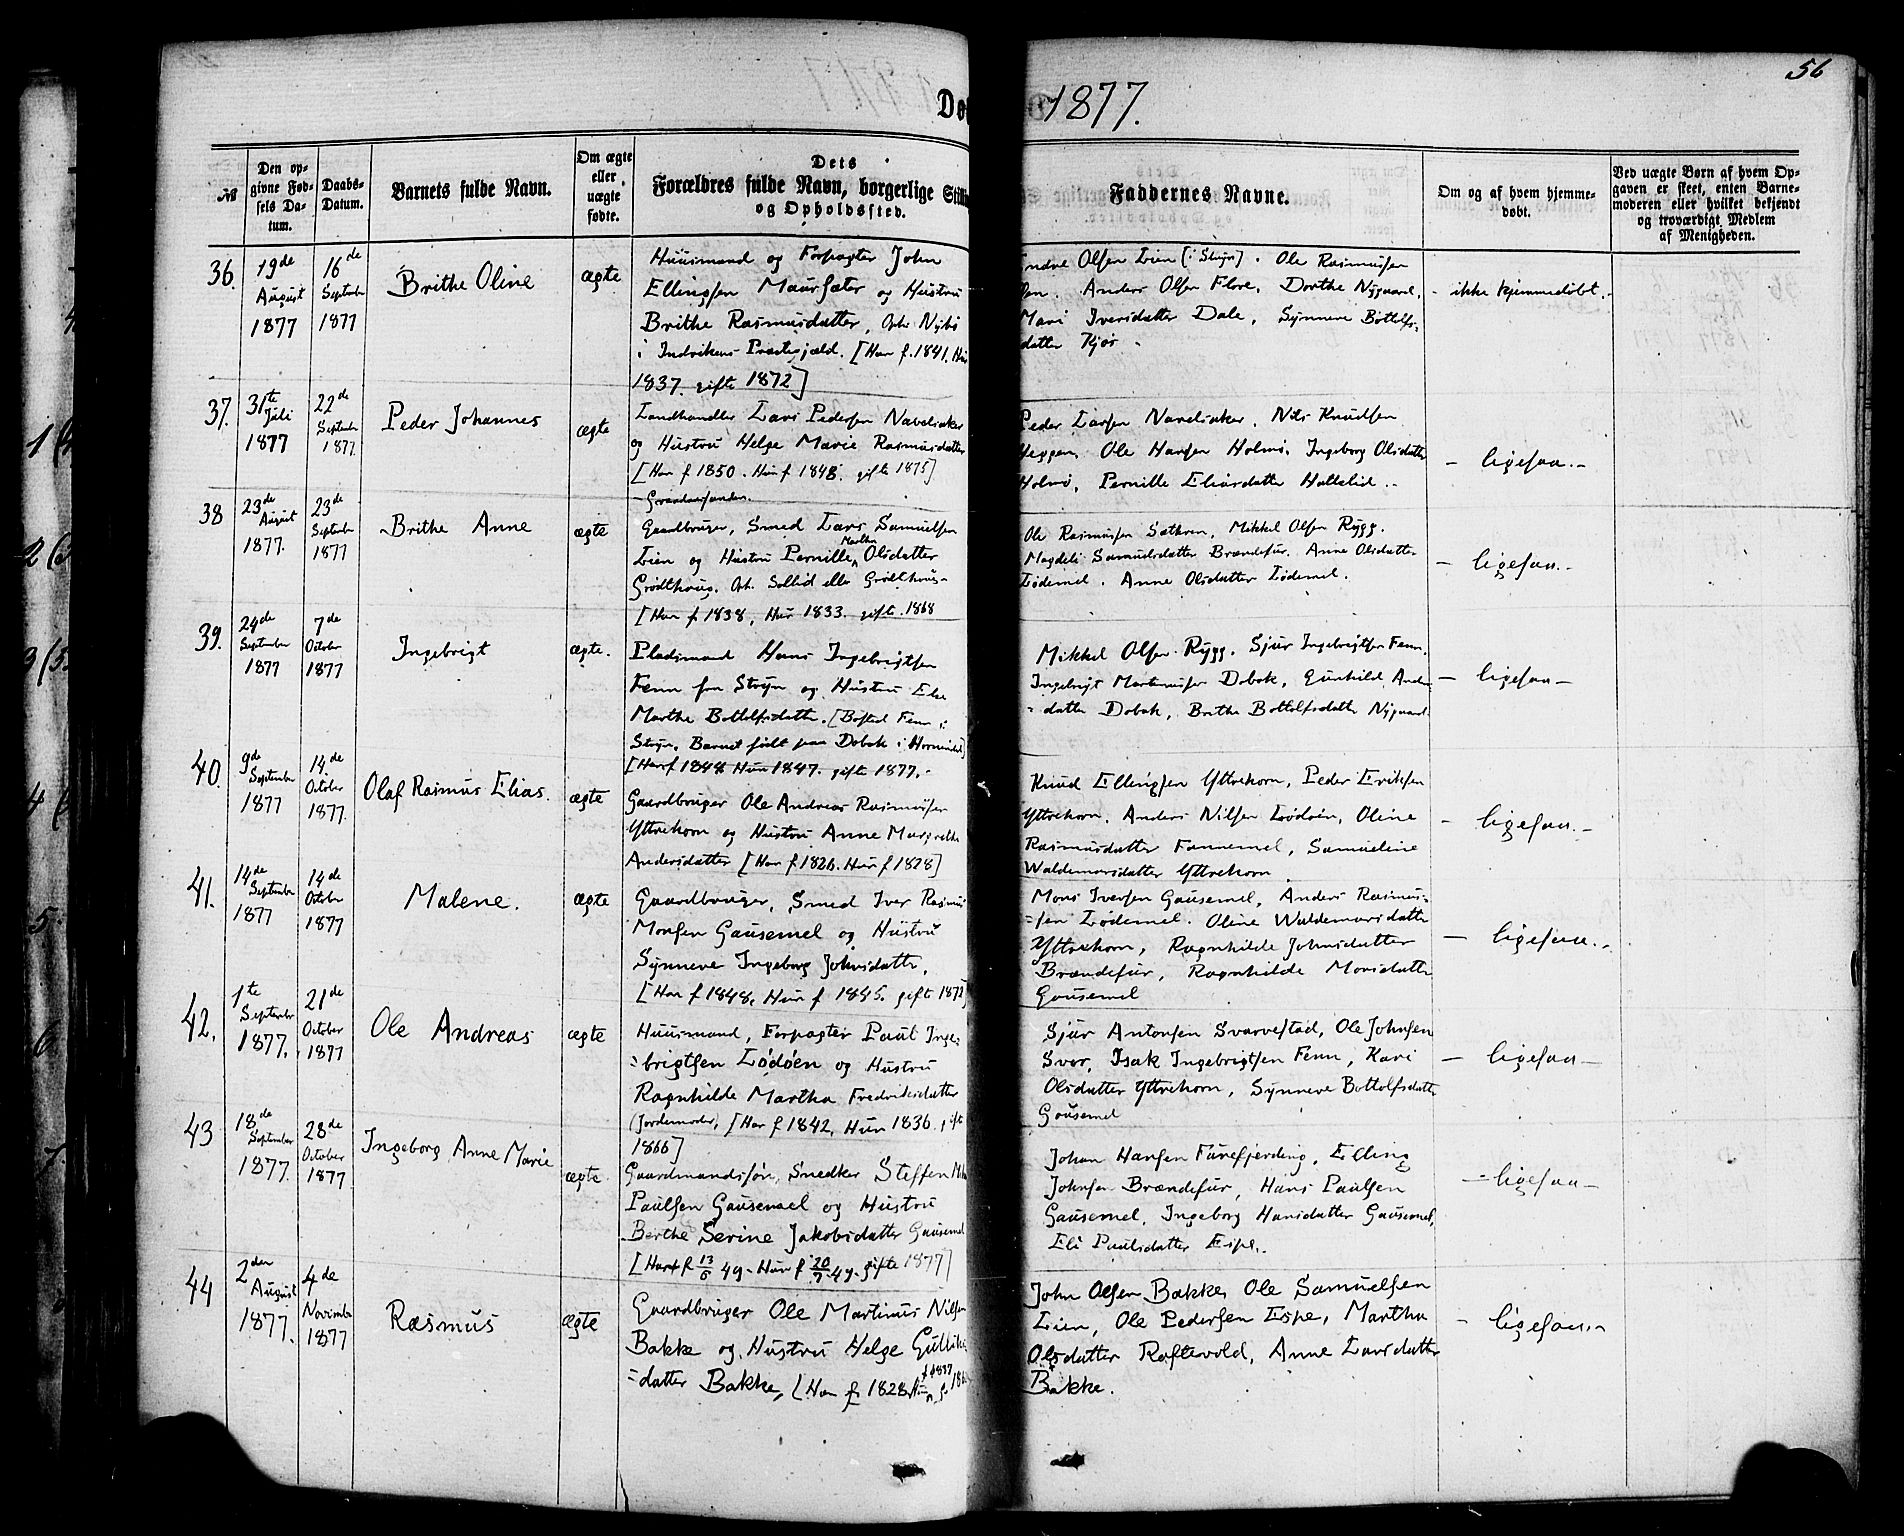 56
Dø
1877.
№
Den op-
givne Fød-
sels Da-
tum.
Daabs-
Datum.
Barnets fulde Navn.
Om ægte
eller
uægte
fødte.
Dets
Forældres fulde Navn, borgerlige Stilli
og Opholdssted.
Faddernes Navne.
Om og af hvem hjemme-
døbt.
Ved uægte Børn af hvem Op-
gaven er skeet, enten Barne-
moderen eller hvilket bekjendt
og troværdigt Medlem
af Menigheden.
36.
19de
August
1877
16de
September
1877
Brithe Oline
ægte
Huusmand og Forpagter John
Ellingsen Maursæter og Hustru
Brithe Rasmusdatter, Oph. Nybø
i Indvikens Præstegjæld. [Han f. 1841. Hun
1837. gifte 1872]
Endre Olsen Lien [i Stryn]. Ole Rasmussen
Anders Olsen Flore, Dorthe Nygaard,
Mari Iversdatter Dale, Synneve Bottolfs-
datter Kjøs.
- ikke hjemmedøbt.-
37.
31te
Juli
1877
22de
September
1877.
Peder Johannes
ægte
Landhandler Lars Pedersen Navelsaker
og Hustru Helge Marie Rasmusdatter
[Han f 1850. Hun f 1848. gifte 1875]
Peder Larsen Navelsaker, Nils Knudsen
Heggen, Ole Hansen Holmø, Ingeborg Olsdatter
Holmø, Pernille Eliasdatter Hallelid.-
- ligesaa.-
38
23de
August
1877.
23de
September
1877
Brithe Anne
ægte
Gaardbruger, Smed Lars Samuelsen
Lien og Hustru Pernille Marthe Olsdatter
Grodthoug. Oph. Sollid eller Grodthoug-
[Han f 1838, Hun 1833. gifte. 1868
Ole Rasmussen Sætren, Mikkel Olsen Rygg.
Magdeli Samuelsdatter Brændefur. Anne Olsdatter
Lødemel. Anne Olsdatter Lødemel.
- ligesaa.-
39.
24de
September
1877
7de
October
1877
Ingebrigt
ægte.
Pladsmand Hans Ingebrigtsen
Fenn fra Stryn og Hustru Else
Marthe Bottolfsdatter. [Bosted Fenn i
Stryn. Barnet født paa Dobak i Hornindal]
[Han f 1844 Hun 1847. gifte 1877.-
Mikkel Olsen Rygg. Sjur Ingebrigtsen Fenn.
Ingebrigt Martinussen Dobak, Gunhild Anders
-datter Dobak, Brithe Bottolfsdatter Nygaard
- ligesaa-
40.
9de
September
1877
14de
October
1877.
Olaf Rasmus Elias.
ægte
Gaardbruger Ole Andreas Rasmussen
Yttrehorn og Hustru Anne Margrethe
Andersdatter [Han f 1826. Hun f 1828]
Knud Ellingsen Yttrehorn, Peder Eriksen
Yttrehorn. Anders Nilsen Lødøen, Oline
Rasmusdatter Fannemel, Samueline
Waldemarsdatter Yttrehorn
- ligesaa.-
41.
14de
September
1877
14de
October
1877
Malene.
ægte
Gaardbruger, Smed Iver Rasmus
Monsen Gausemel og Hustru
Synneve Ingeborg Johnsdatter,
[Han f 1848, Hun f 1845. gift 1872]
Mons Iversen Gausemel, Anders Rasmus-
-sen Lødemel. Oline Waldemarsdatter
Yttrehorn, Ragnhilde Johnsdatter
Brændefur, Ragnhilde Monsdatter
Gausemel
- ligesaa.-
42.
1te
September
1877.
21de
October
1877
Ole Andreas
ægte
Huusmand, Forpagter Paul Inge-
-brigtsen Lødøen og Hustru
Ragnhilde Martha Fredriksdatter
(Jordemoder) [Han f 1842, Hun 1836. gift
1866]
Sjur Antonsen Svarvestad, Ole Johnsen
Svor, Isak Ingebrigtsen Fenn, Kari
Olsdatter Yttrehorn, Synneve Bottolfsdatter
Gausemel
- ligesaa-
43
18de
September
1877.
28de
October
1877.
Ingeborg Anne Marie
ægte.
Gaardmandssøn, Snedker Steffen
Paulsen Gausemel og Hustru
Berthe Serine Jakobsdatter Gausemel
[Han f 13/6 49 - Hun f 20/7 49. gifte 1877]
Johan Hansen Furefjerding, Elling
Johnsen Brændefur, Hans Paulsen
Gausemel, Ingeborg Hansdatter Gausemel,
Eli Paulsdatter Espe.
- ligesaa-
44
2den
August
1877.
4de
November
1877
Rasmus
ægte
Gaardbruger Ole Martinus Nilsen
Bakke og Hustru Helge Gulliks
-datter Bakke, [Han f 1828. Hun f 1837
John Olsen Bakke, Ole Samuelsen
Lien, Ole Pedersen Espe, Martha
Olsdatter Raftevold, Anne Larsdatter
Bakke.
- ligesaa.-